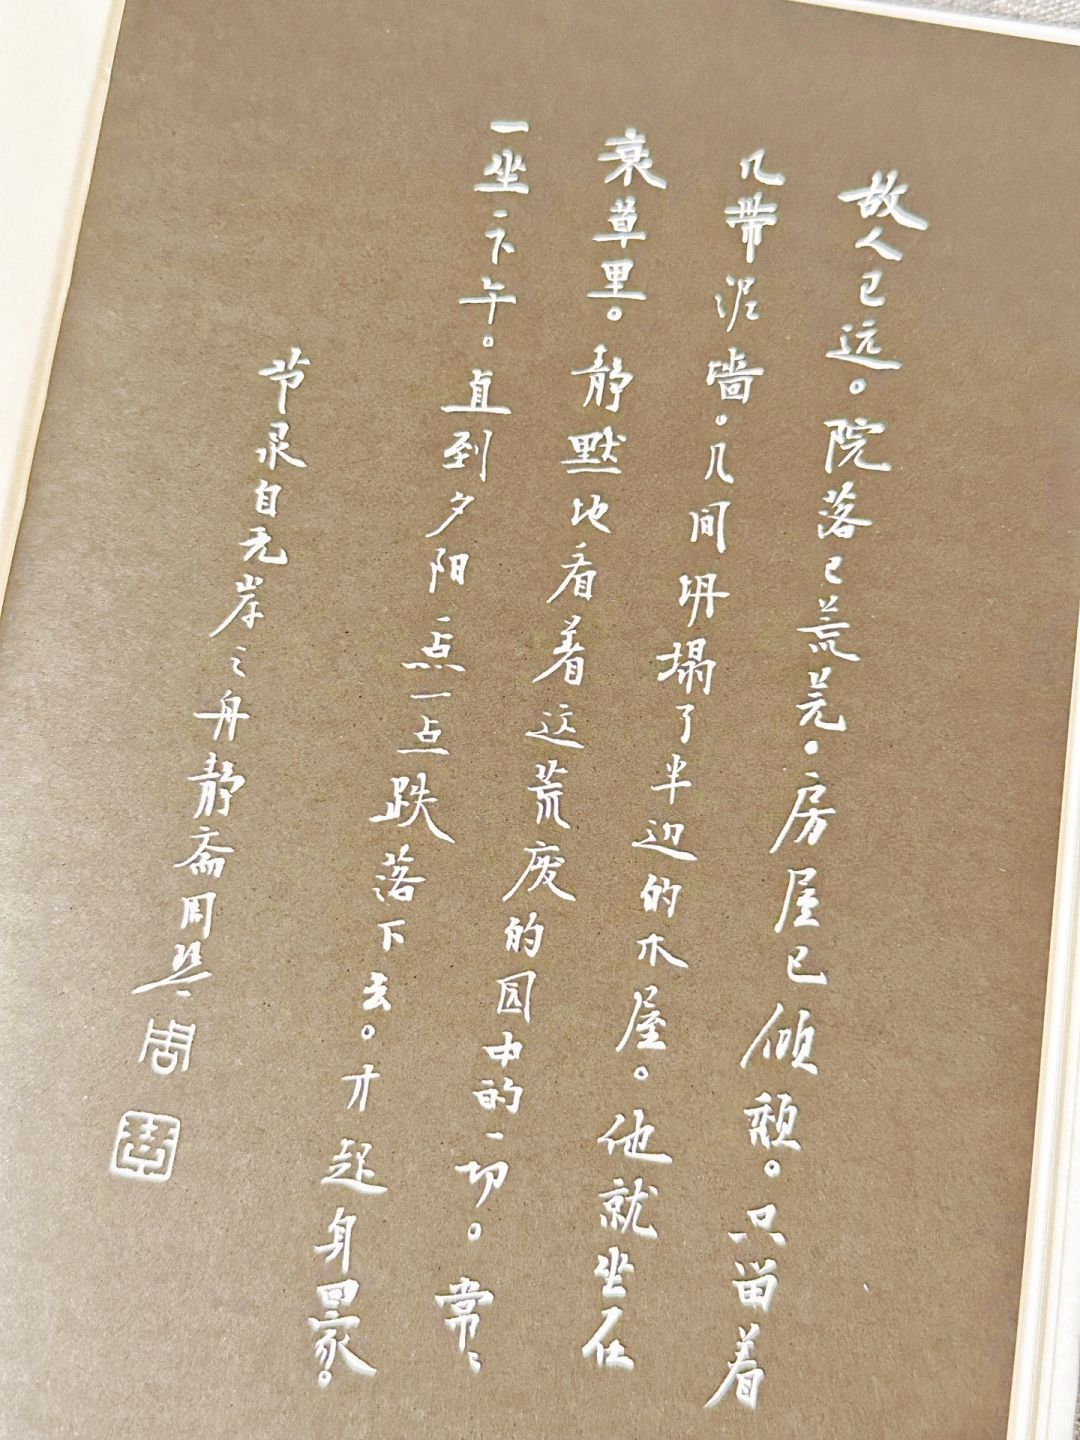 故人已远。院落已荒芜。房屋已倾颓。只留着
几带泥墙。几间坍塌了半边的木屋。他就坐在
衰草里。静默地看着这荒废的园中的一切。常常
一坐一下午。直到夕阳一点一点跌落下去。才起身回家。
节录自无岸之舟静斋周
周